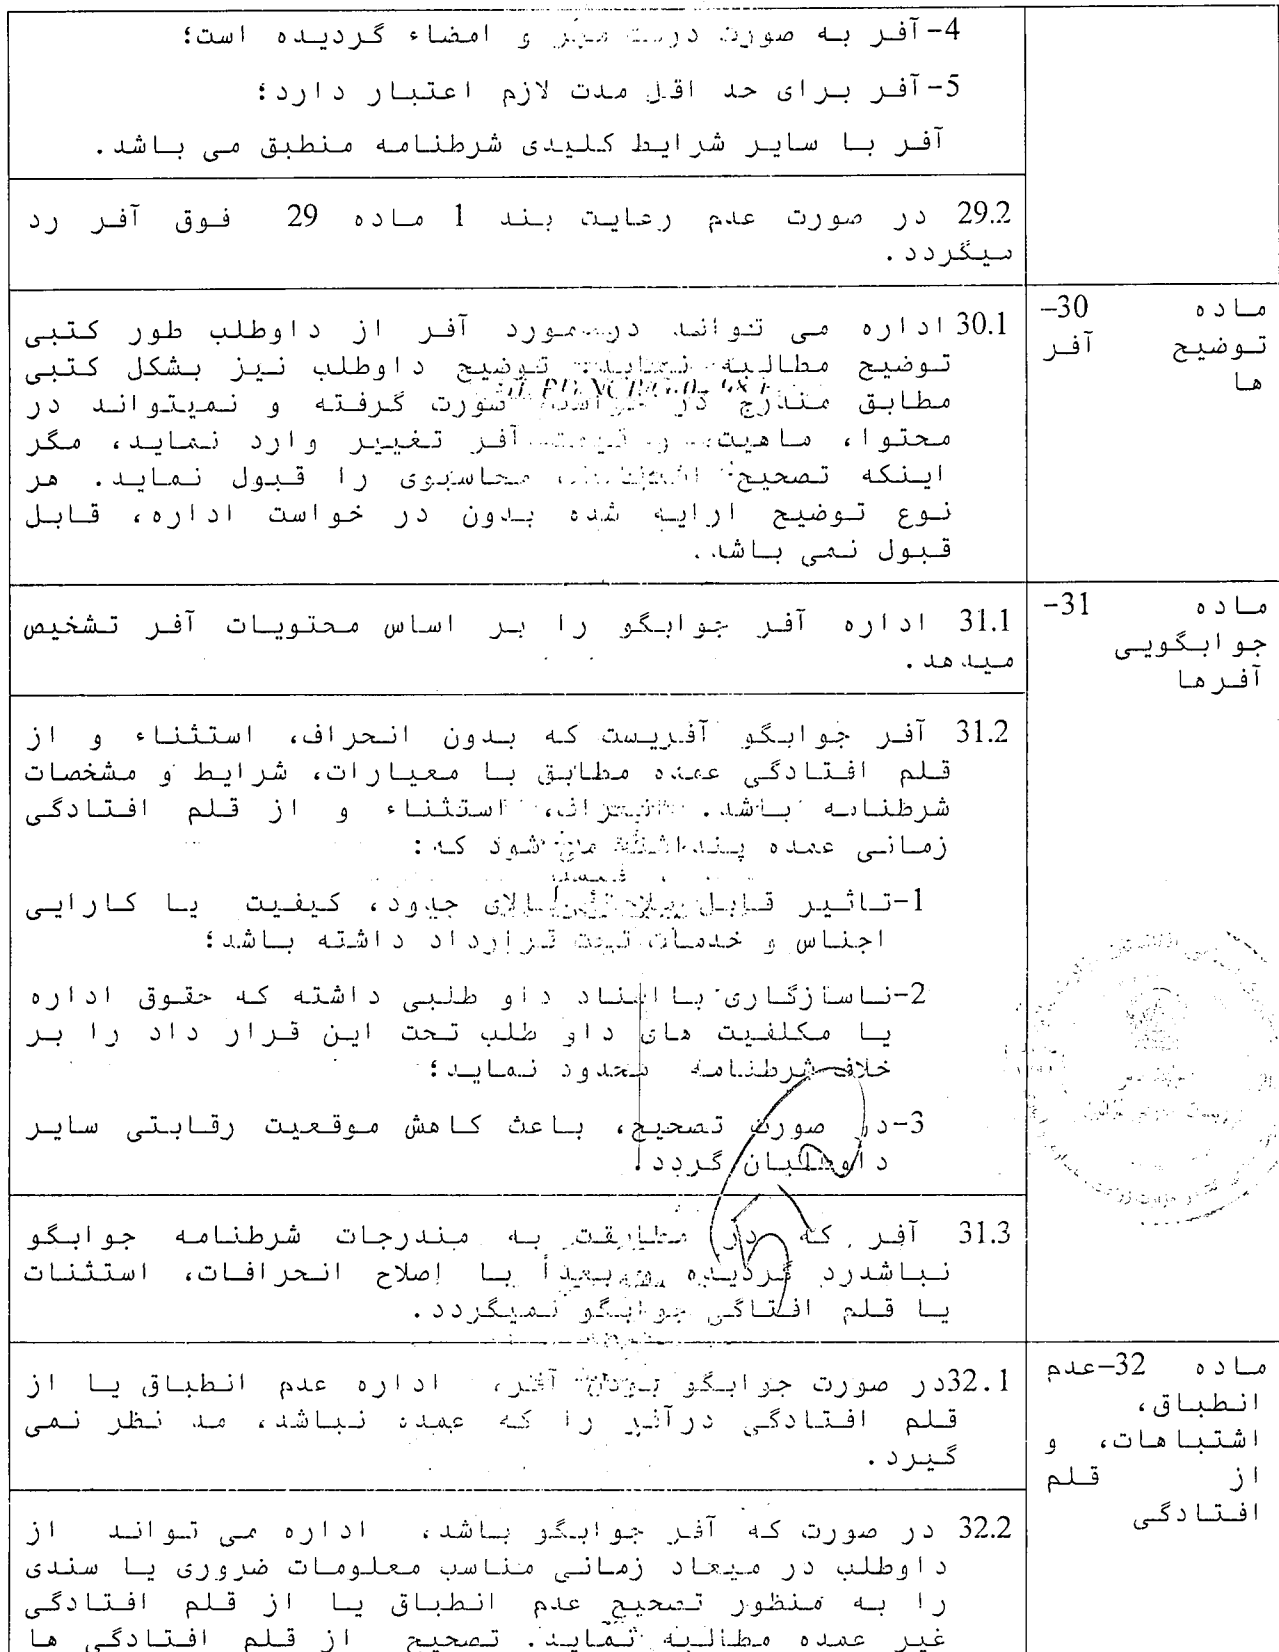 4-آفر به صورت درست مهر و امضاء گردیده است؛
5-آفر برای حد اقل مدت لازم اعتبار دارد؛
آفر با سایر شرایط کلیدی شرطنامه منطبق می باشد.
29.2 در صورت عدم رعایت بند 1 ماده 29 فوق آفر رد
میگردد.
ماده 30-
توضیح آفر
ها
30.1 اداره می تواند در مورد آفر از داوطلب طور کتبی
توضیح مطالبه نماید. توضیح داوطلب نیز بشکل کتبی
مطابق مندرج در صورت گرفته و نمیتواند در
محتوا، ماهیت و قیمت آفر تغییر وارد نماید، مگر
اینکه تصحیح محاسبوی را قبول نماید. هر
نوع توضیح ارایه شده بدون در خواست اداره، قابل
قبول نمی باشد.
ماده 31-
جوابگویی
آفرها
31.1 اداره آفر جوابگو را بر اساس محتویات آفر تشخیص
میدهد.
31.2 آفر جوابگو آفریست که بدون انحراف، استثناء و از
قلم افتادگی عمده مطابق با معیارات، شرایط و مشخصات
شرطنامه باشد. انحراف، استثناء و از قلم افتادگی
زمانی عمده پنداشته می شود که:
1-تاثیر قابل ملاحظه بالای حدود، کیفیت یا کارایی
اجناس و خدمات تحت قرارداد داشته باشد؛
2-ناسازگاری با اسناد داو طلبی داشته که حقوق اداره
یا مکلفیت های داو طلب تحت این قرار داد را بر
خلاف شرطنامه محدود نماید؛
3-در صورت تصحیح، باعث کاهش موقعیت رقابتی سایر
داوطلبان گردد.
31.3 آفر که در مطابقت به مندرجات شرطنامه جوابگو
نباشدرد گردیده و بعداً با اصلاح انحرافات، استثنات
یا قلم افتاگی جوابگو نمیگردد.
ماده 32-عدم
انطباق،
اشتباهات، و
از قلم
افتادگی
32.1در صورت جوابگو بودن آفر، اداره عدم انطباق یا از
قلم افتادگی درآفر را که عمده نباشد، مد نظر نمی
گیرد.
32.2 در صورت که آفر جوابگو باشد، اداره می تواند از
داوطلب در میعاد زمانی مناسب معلومات ضروری یا سندی
را به منظور تصحیح عدم انطباق یا از قلم افتادگی
غیر عمده مطالبه نماید. تصحیح از قلم افتادگی ها